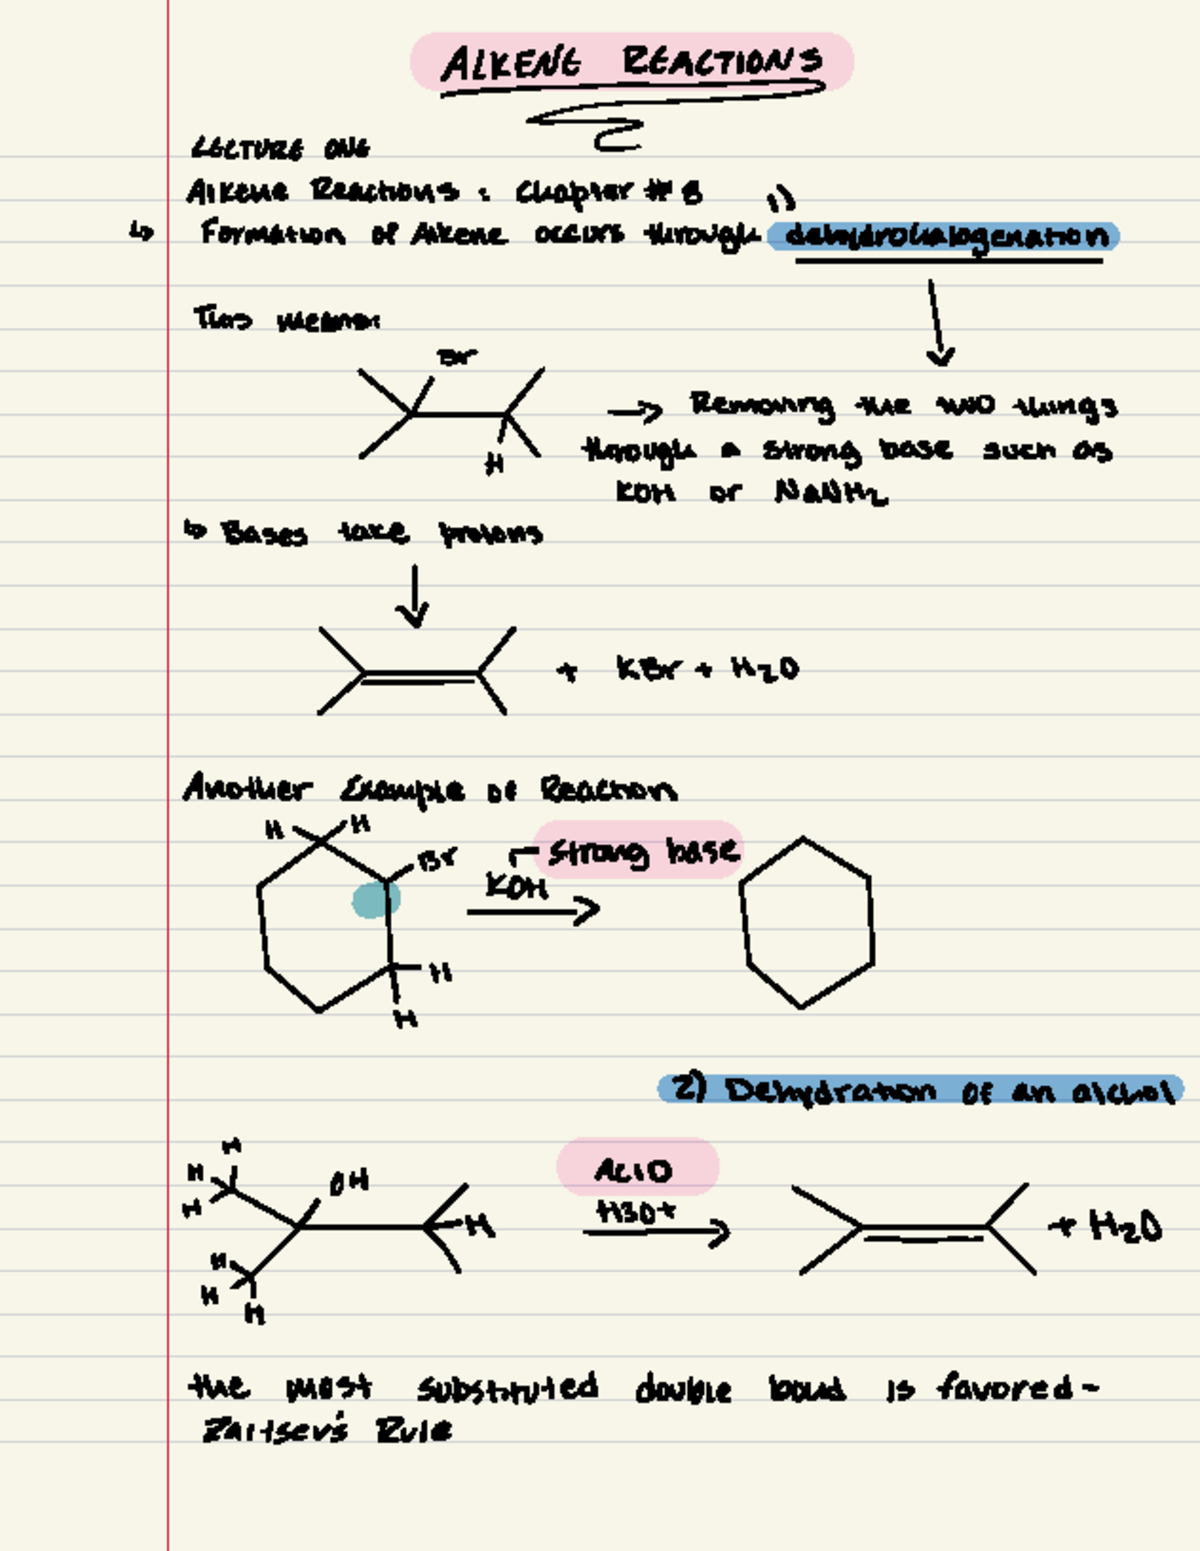 ALKENE REACTIONS
LECTURE ONE
Alkene Reactions : Chapter # 8
↳ Formation of Alkene occurs through 1) dehydrohalogenation
This means:
Br
H
→ Removing the two things
through a strong base such as
KOH or NaNH2
↳ Bases take protons
+ KBr + H2O
Another Example of Reaction
H H
Br
H
H
strong base
KOH
2) Dehydration of an alchol
H
H
H
OH
H
H
H
H
ACID
H3O+
+ H2O
the most substituted double bond is favored -
Zaitsev's Rule